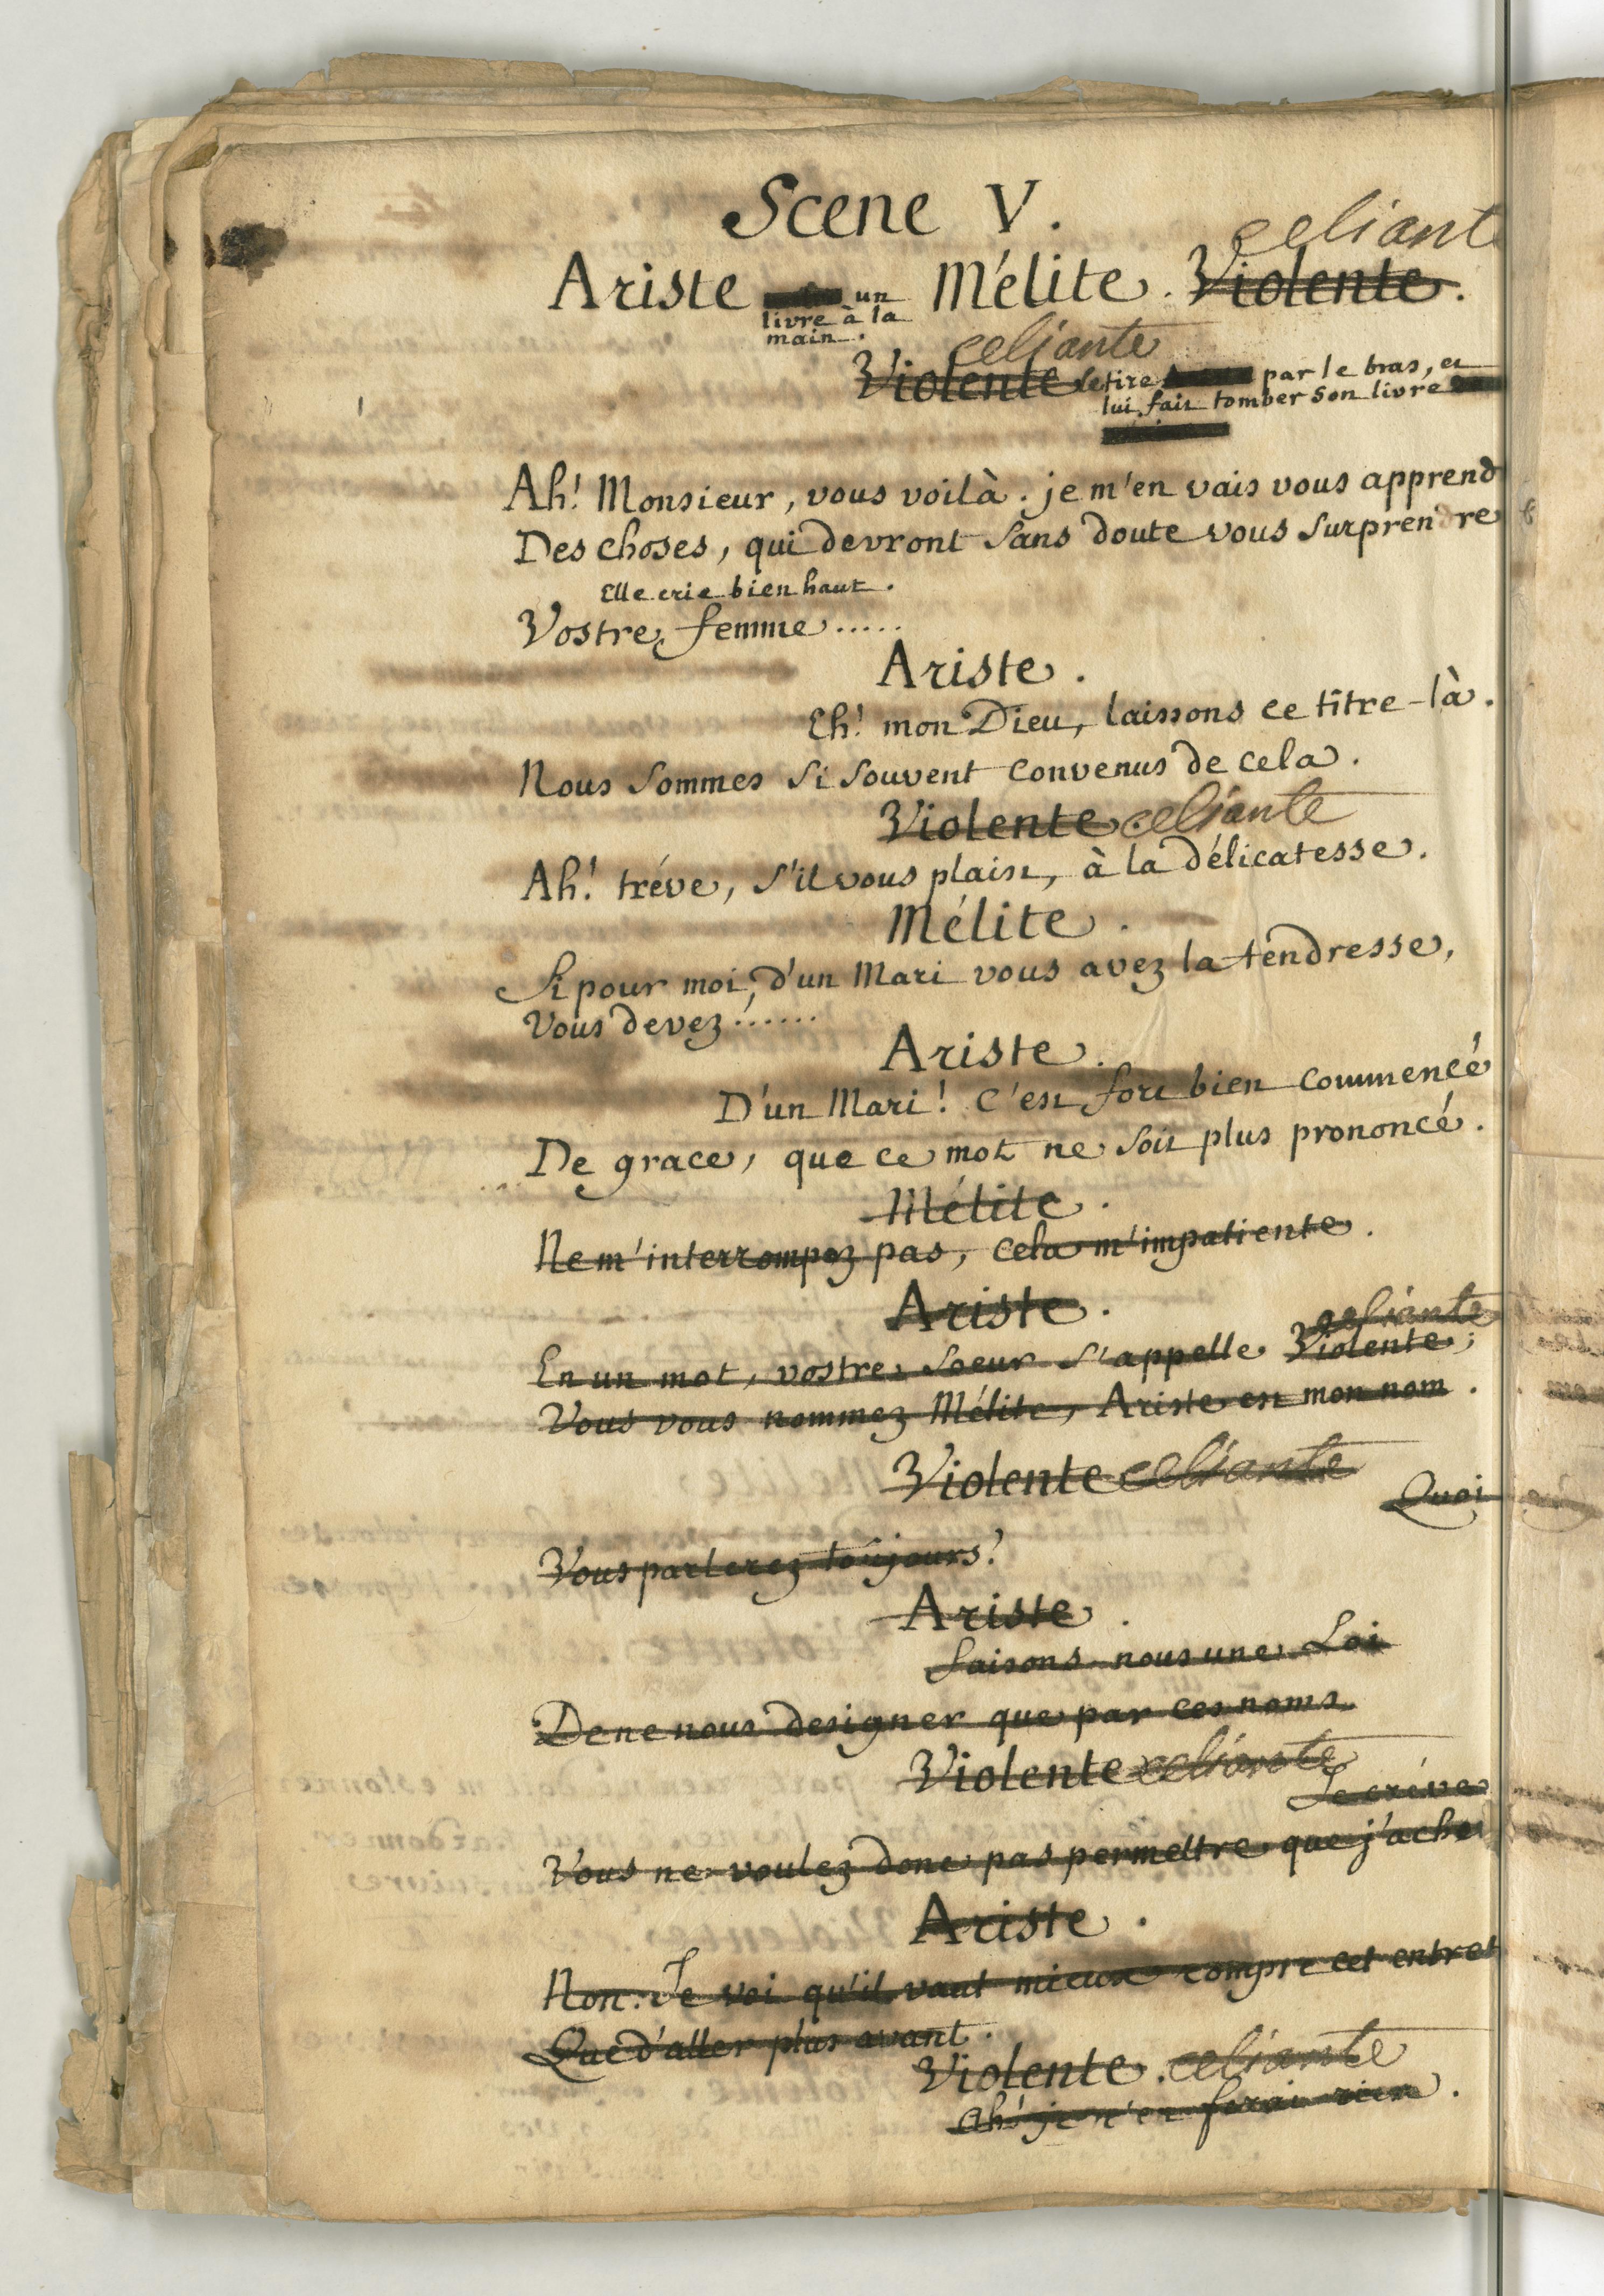 Scene V.
celiant
Ariste un Mélite. Violente.
livre à la
main.
celiante
Violente le tire par le bras, et
lui fait tomber son livre
Ah! Monsieur, vous voilà. je m'en vais vous apprend
Des choses, qui devront sans doute vous surprendre
Elle crie bien haut.
Vostre femme.....
Ariste.
Eh! mon Dieu, laissons ce titre-là.
Nous sommes si souvent convenus de cela.
Violente. celiante
Ah! tréve, s'il vous plaist, à la délicatesse.
Mélite.
Si pour moi, d'un Mari vous avez la tendresse,
Vous devez!......
Ariste.
D'un Mari! C'est fort bien commencé
De grace, que ce mot ne soit plus prononcé.
Mélite.
Ne m'interrompez pas, cela m'impatiente.
Ariste.
celiante
En un mot, vostre soeur s'appelle Violente;
Vous vous nommez Mélite, Ariste est mon nom.
Violente celiante
Quoi
Vous parlerez toûjours!
Ariste.
Faisons-nous une Loi
De ne nous designer que par ces noms.
Violente celiante
Je créve
Vous ne voulez donc pas permettre que j'ache
Ariste.
Non. Je voi qu'il vaut mieux rompre cet entret
Que d'aller plus avant.
Violente. celiante
Ah! je n'en ferai rien.